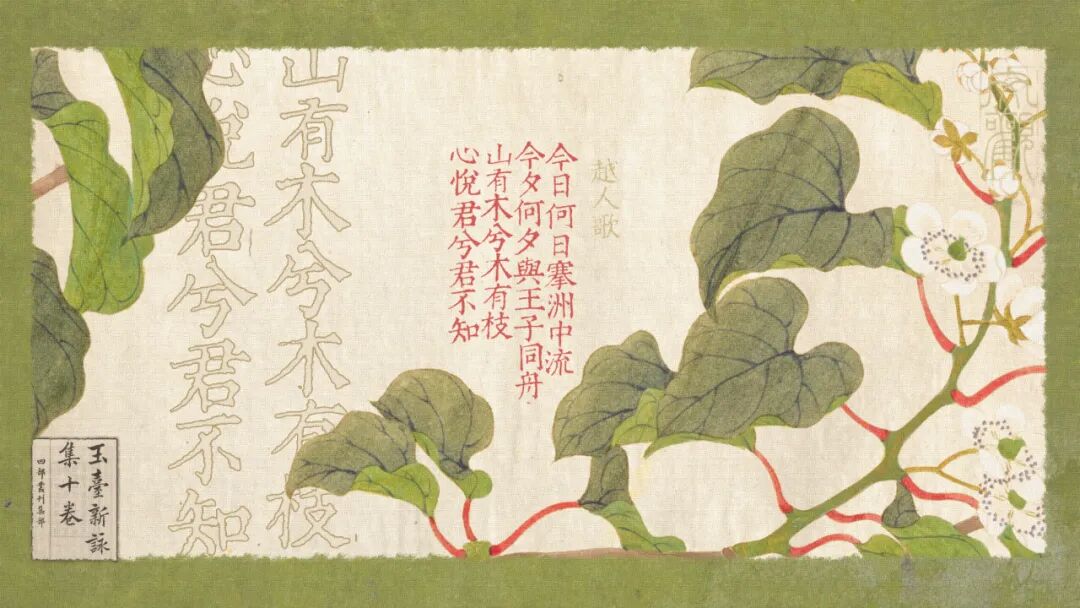 越人歌
今日何日搴洲中流
今夕何夕與王子同舟
山有木兮木有枝
心悅君兮君不知
山有木兮木有枝
心悅君兮君不知
玉臺新詠
集十卷
四部叢刊集部